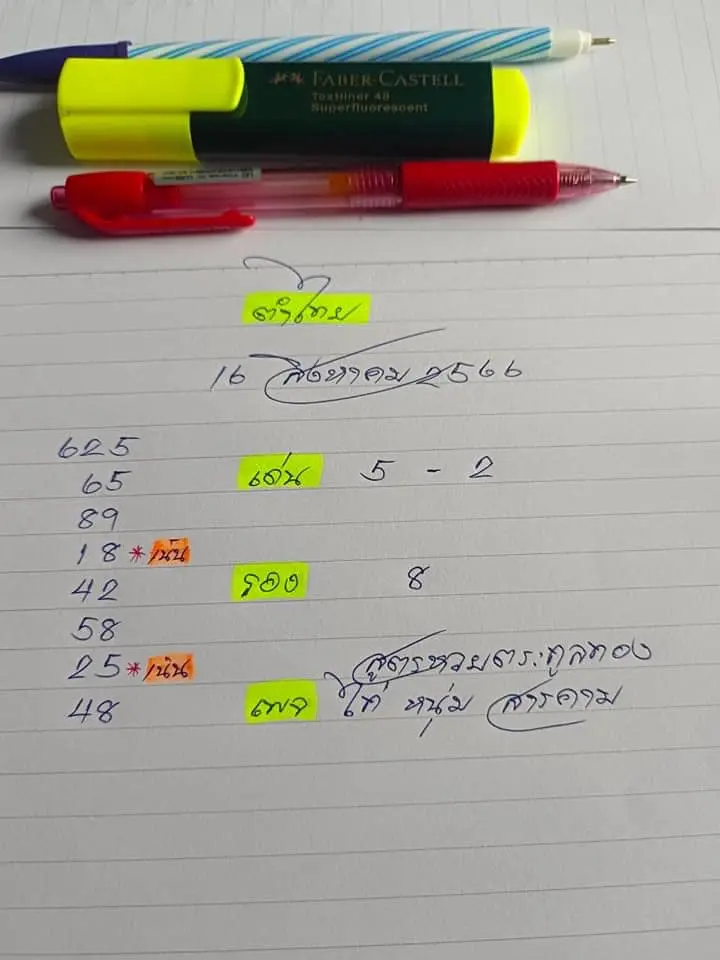 FABER-CASTELL
Textliner 48
Superfluorescent
16 สิงหาคม 2566
625
65
เด่น 5 - 2
89
18 * เน้น
42
รอง 8
58
25 * เน้น
สูตรหวยตระกูลทอง
48
เพจ โก๋ หนุ่ม สารคาม